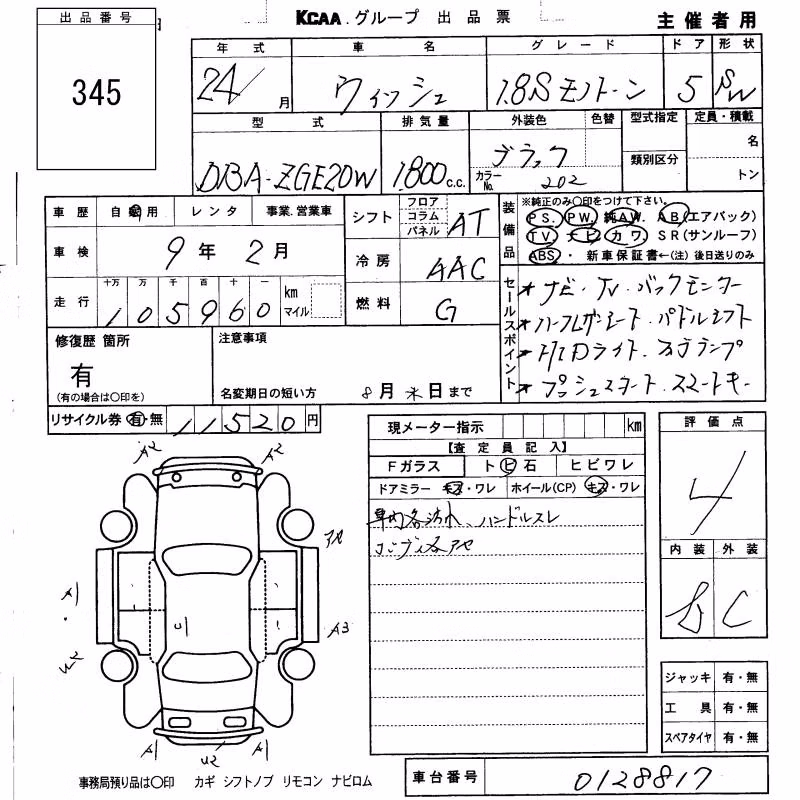 出品番号
345
KCAA.グループ 出品票
主催者用
年式 車名 グレード ドア 形状
24/月 ウィッシュ 1.8S モノトーン 5 SW
型式 排気量 外装色 色替 型式指定 定員・積載
DBA-ZGE20W 1800 c.c. ブラック 名
カラーNo. 202 類別区分 トン
車歴 自家用 レンタ 事業.営業車
車検 9年2月
走行 十万 万 千 百 十 一
105960 km マイル
シフト フロア コラム パネル AT
冷房 AAC
燃料 G
装備品 ※純正のみ○印をつけて下さい。
PS. PW. 純AW. AB(エアバック)
TV ナビ カワ SR(サンルーフ)
ABS ・ 新車保証書←(注) 後日送りのみ
セールスポイント
* ナビ・TV・バックモニター
* ハーフレザーシート・パドルシフト
* HIDライト・フォグランプ
* プッシュスタート・スマートキー
修復歴 箇所
有
(有の場合は○印を)
注意事項
名変期日の短い方 8月末日まで
リサイクル券 有・無 11520円
現メーター指示 km
【査定員記入】
Fガラス トビ石 ヒビワレ
ドアミラー キズ・ワレ ホイール(CP) キズ・ワレ
車内各汚れ、ハンドルスレ
評価点
4
内装 外装
C
A2 A2
A1
A3
U
U2
A1 U2 A1
ジャッキ 有・無
工具 有・無
スペアタイヤ 有・無
事務局預り品は○印 カギ シフトノブ リモコン ナビロム
車台番号 0128817